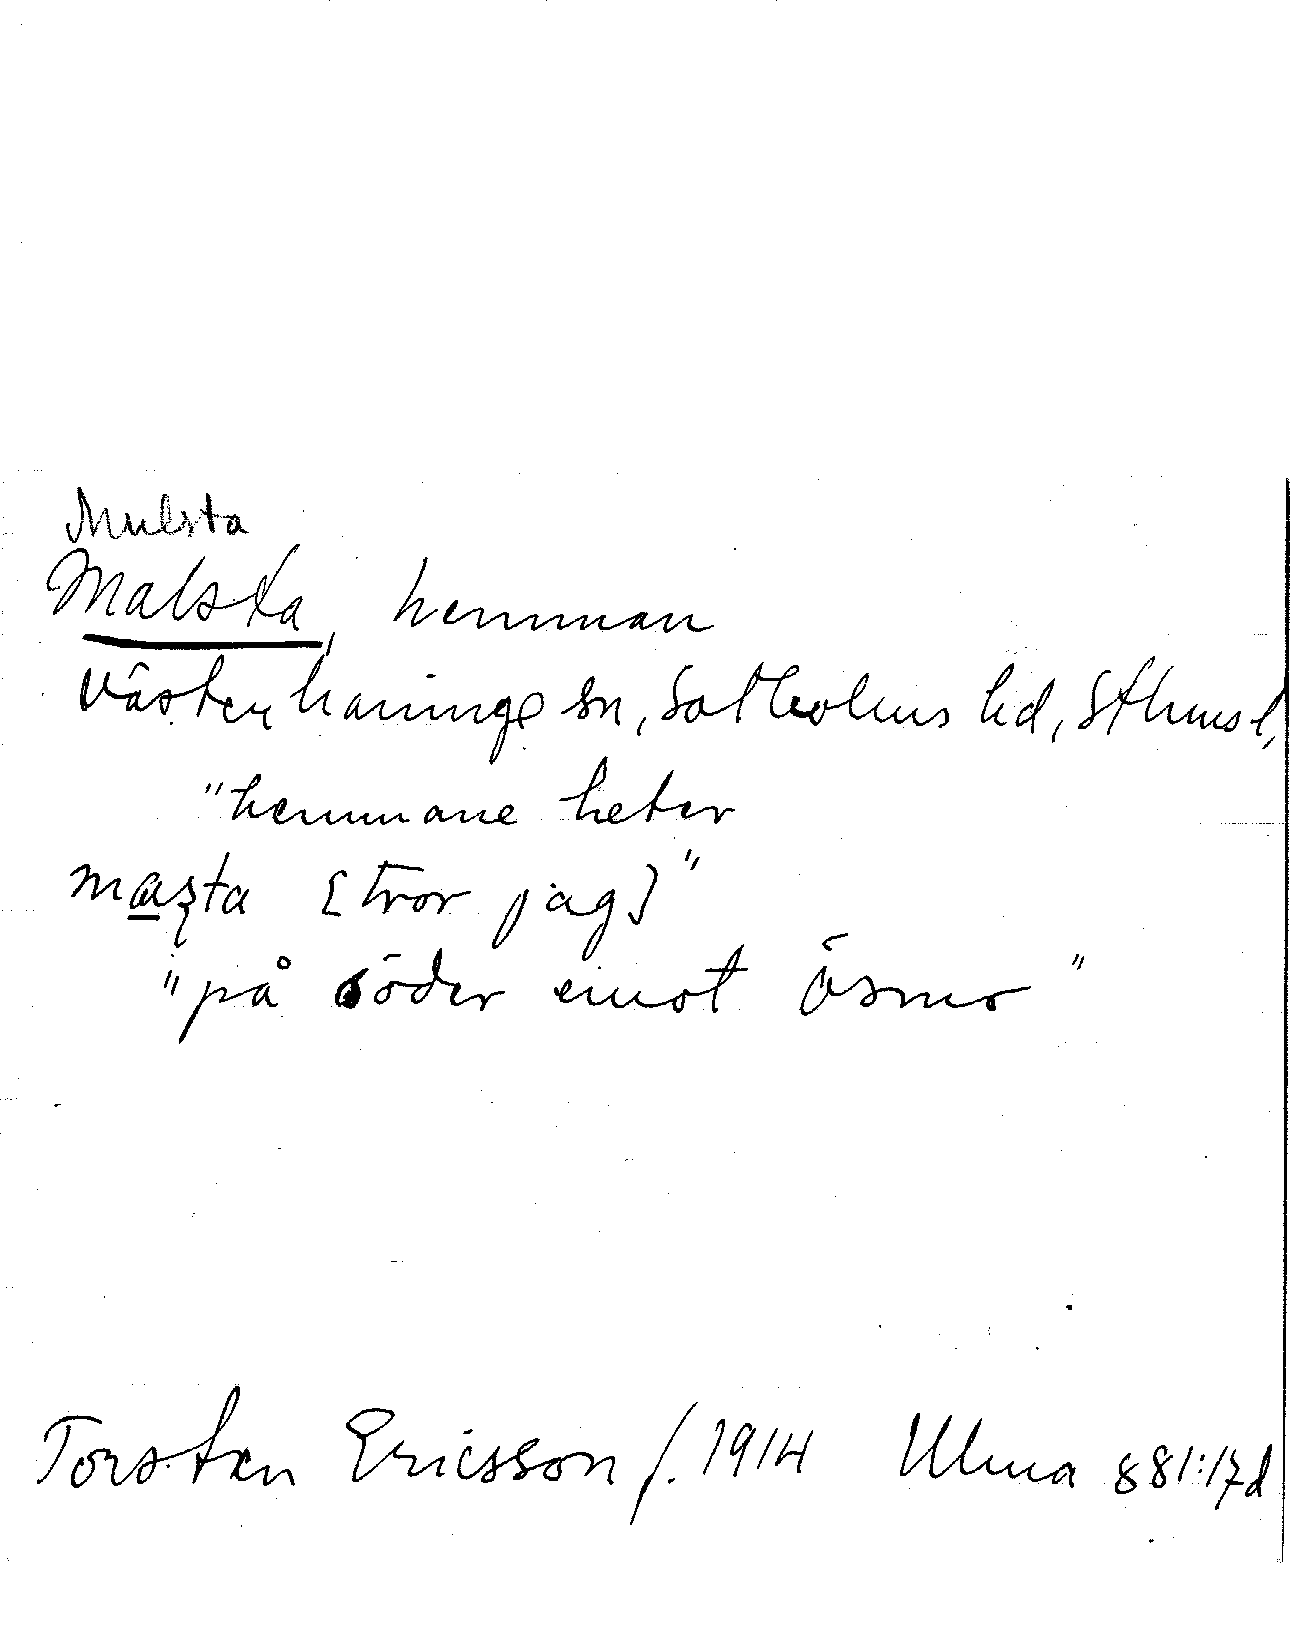 Mulsta
Malsta, hemman
Västerhaninge sn, Sotholms hd, Sthms l,
"hemmane heter
mas̨ta [tror jag]"
"på söder emot Ösmo"
Torsten Ericsson f. 1914 Ulma 881:17d